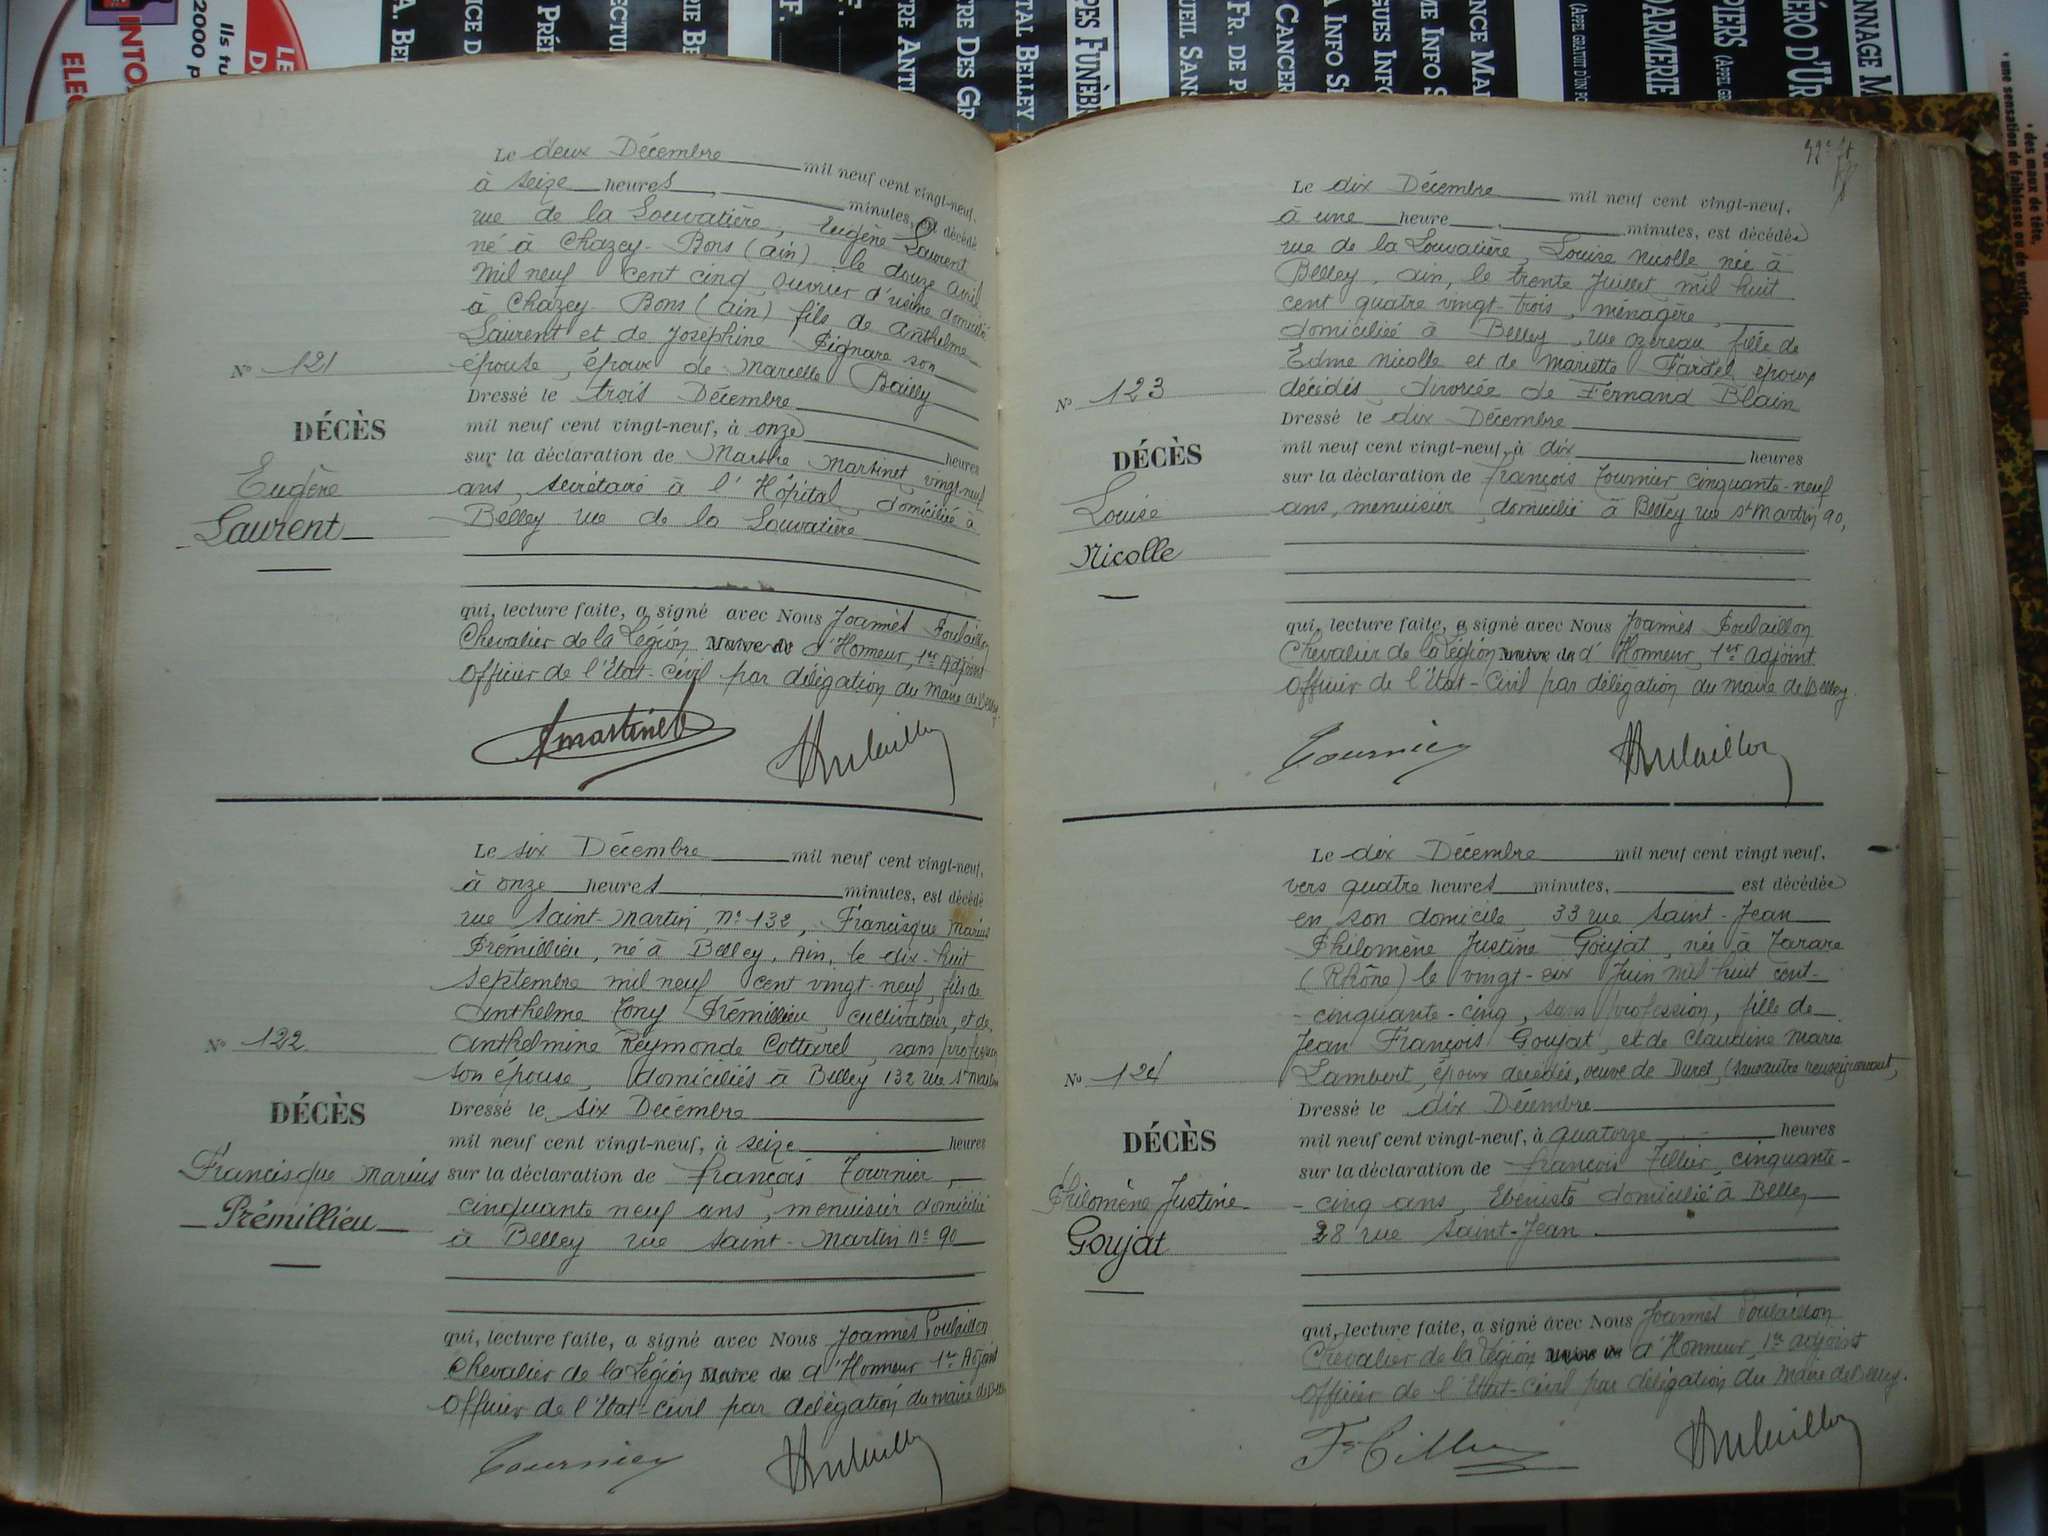 INTO
2000 p
Ils tu
ELEC
LE
A. BEL
PRÉ
RIE BE
F.
TRE ANTI
TRE DES GR
TAL BELLEY
PES FUNÈB
UEIL SANS
FR. DE P
CANCER
INFO S
GUES INFO
ME INFO S
NCE MA
DARMERIE
PIERS (APPEL GR
ÉRO D'UR
(APPEL GRATUIT D'UN PO
NNAGE M
• des maux de tête,
• une sensation de faiblesse ou de vertige,
Le deux Décembre mil neuf cent vingt-neuf,
à seize heures, minutes, est décédé
rue de la Louvatière, Eugène Laurent
né à Chazey-Bons (ain) le douze avril
mil neuf cent cinq ouvrier d'usine domicilié
à Chazey-Bons (ain) fils de Anthelme
Laurent et de Joséphine Pignare son
épouse, époux de Marcelle Bailly
Nº 121
DÉCÈS
Eugène
Laurent
Dressé le trois Décembre
mil neuf cent vingt-neuf, à onze heures
sur la déclaration de Marthe Martinet, vingt-neuf
ans, secrétaire à l'Hôpital, domiciliée à
Belley rue de la Louvatière
qui, lecture faite, a signé avec Nous Joannès Poulaillon
Chevalier de la Légion Maire de d'Honneur, 1er Adjoint
Officier de l'Etat-Civil par délégation du Maire de Belley.
Martinet
Poulaillon
Le six Décembre mil neuf cent vingt-neuf,
à onze heures minutes, est décédé
rue Saint-Martin, nº 132, Francisque Marius
Prémillieu, né à Belley, Ain, le dix-huit
septembre mil neuf cent vingt-neuf, fils de
Anthelme Tony Prémillieu, cultivateur, et de
Anthelmine Reymonde Cottarel, sans profession
son épouse, domiciliés à Belley 132 rue St Martin
Nº 122
DÉCÈS
Francisque Marius
Prémillieu
Dressé le six Décembre
mil neuf cent vingt-neuf, à seize heures
sur la déclaration de François Tournier,
cinquante neuf ans, menuisier domicilié
à Belley rue Saint-Martin nº 90
qui, lecture faite, a signé avec Nous Joannès Poulaillon
Chevalier de la Légion Maire de d'Honneur 1er Adjoint
Officier de l'Etat-Civil par délégation du maire de Belley
Tournier
Poulaillon
Le dix Décembre mil neuf cent vingt-neuf,
à une heure minutes, est décédée
rue de la Louvatière, Louise Nicolle née à
Belley, ain, le trente Juillet mil huit
cent quatre vingt-trois, ménagère,
domiciliée à Belley, rue ozereau fille de
Edme Nicolle et de Mariette Fardel époux
décédés, divorcée de Fernand Blain
Nº 123
DÉCÈS
Louise
Nicolle
Dressé le dix Décembre
mil neuf cent vingt-neuf, à dix heures
sur la déclaration de François Tournier cinquante-neuf
ans, menuisier, domicilié à Belley rue St Martin 90,
qui, lecture faite, a signé avec Nous Joannès Poulaillon
Chevalier de la Légion Maire de d'Honneur, 1er adjoint
Officier de l'Etat-Civil par délégation du maire de Belley.
Tournier
Poulaillon
Le dix Décembre mil neuf cent vingt neuf,
vers quatre heures minutes, est décédée
en son domicile 33 rue Saint-Jean
Philomène Justine Goujat, née à Tarare
(Rhône) le vingt-six Juin mil huit cent-
-cinquante-cinq, sans profession, fille de
Jean François Goujat, et de Claudine Marie
Lambert, époux décédés, veuve de Duret, (sans autre renseignement)
Nº 124
DÉCÈS
Philomène Justine
Goujat
Dressé le dix Décembre
mil neuf cent vingt-neuf, à quatorze heures
sur la déclaration de François Tillier, cinquante-
-cinq ans, Ebéniste domicilié à Belley
28 rue Saint-Jean
qui, lecture faite, a signé avec Nous Joannès Poulaillon
Chevalier de la Légion Maire de d'Honneur, 1er adjoint
Officier de l'Etat-Civil par délégation du Maire de Belley.
Fs Tillier
Poulaillon